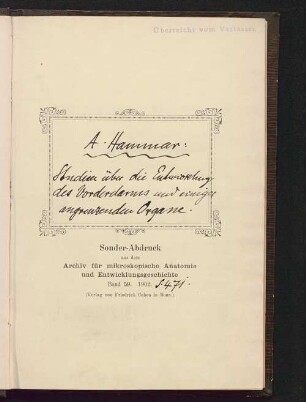 Überreicht vom Verfasser
A. Hammar:
Studien über die Entwicklung
des Vorderdarms und einiger
angrenzenden Organe.
Sonder-Abdruck
aus dem
Archiv für mikroskopische Anatomie
und Entwicklungsgeschichte
Band 59. 1902. S. 471.
(Verlag von Friedrich Cohen in Bonn.)